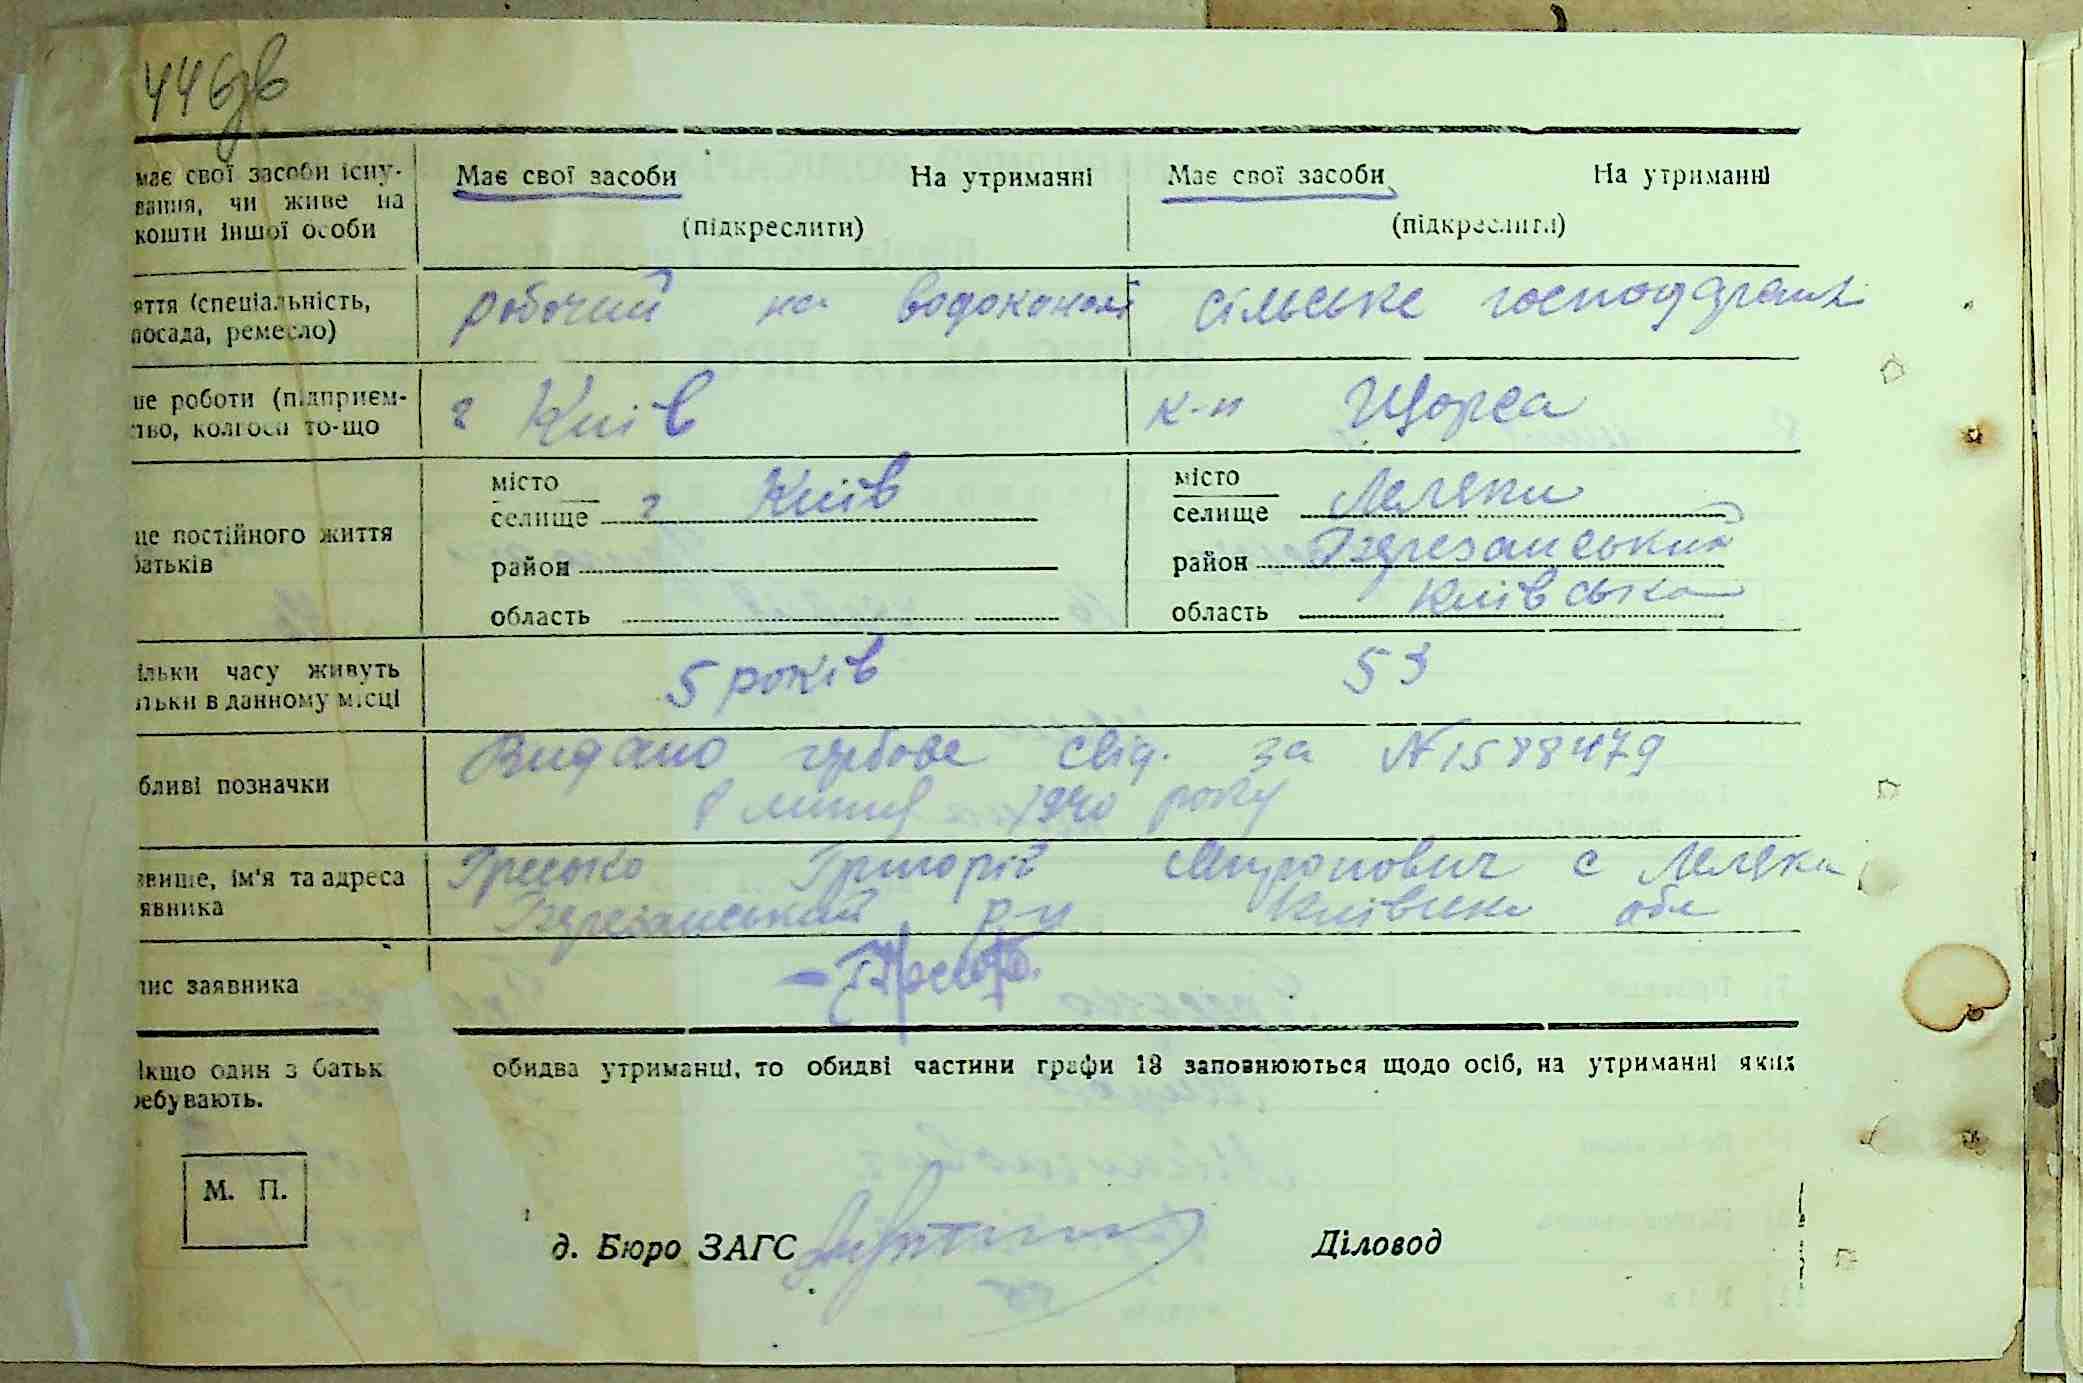 446зв
має свої засоби існу- Має свої засоби На утриманні Має свої засоби На утриманні
вання, чи живе на
кошти іншої особи (підкреслити) (підкреслити)
яття (спеціальність, робочий на водоканалі сільське господарстві
посада, ремесло)
це роботи (підприєм- г Київ к-п Щорса
тво, колгосп то-що
місто місто
селище г Київ селище Леляки
це постійного життя
батьків район район Березанський
область область Київська
ільки часу живуть 5 років 53
тьки в данному місці
Видано гербове свід. за №1588479
бливі позначки в липні 1940 року
звище, ім'я та адреса Гресько Григорій Миронович с Леляки
явника Березанський р-н Київська обл
пис заявника
Якщо один з батьк обидва утриманці, то обидві частини графи 18 заповнюються щодо осіб, на утриманні яких
ребувають.
М. П.
д. Бюро ЗАГС Діловод